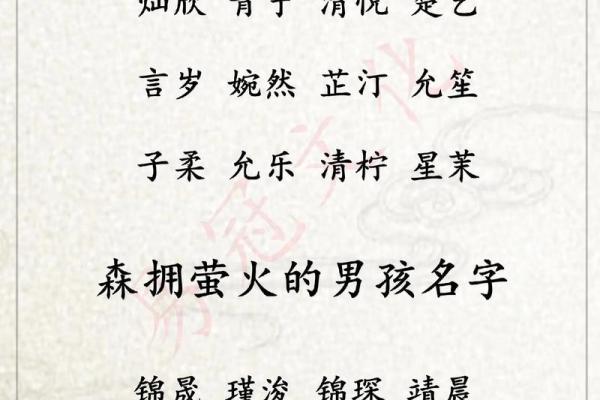 灿欣 青宁 清悦 楚艺
言岁 婉然 芷汀 允笙
子柔 允乐 清柠 星茉
森拥萤火的男孩名字
锦晟 瑾浚 锦琛 靖晨